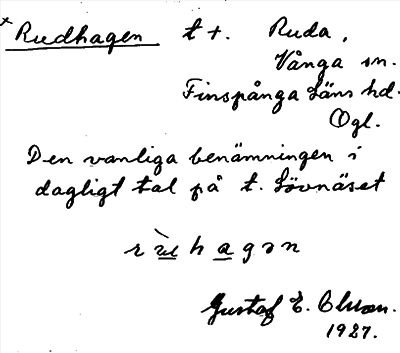 × Rudhagen t +. Ruda,
Vånga sn.
Finspånga Läns hd.
Ögl.
Den vanliga benämningen i
dagligt tal på t. Lövnäset
Gustaf E.
1927.